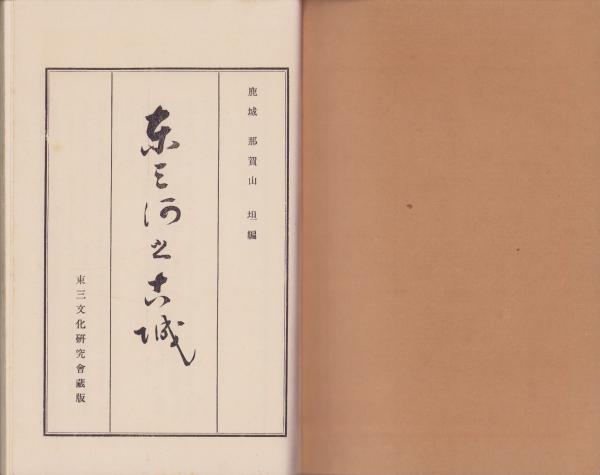 鹿城 那賀山 坦編
東三河之古城
東三文化研究會蔵版